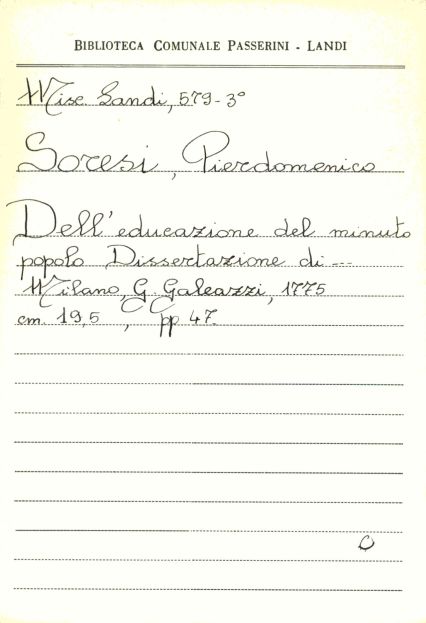 BIBLIOTECA COMUNALE PASSERINI - LANDI
Misc. Landi, 579-3°
Soresi, Pierdomenico
Dell'educazione del minuto
popolo Dissertazione di ---
Milano, G. Galeazzi, 1775
cm. 19,5, pp 47.